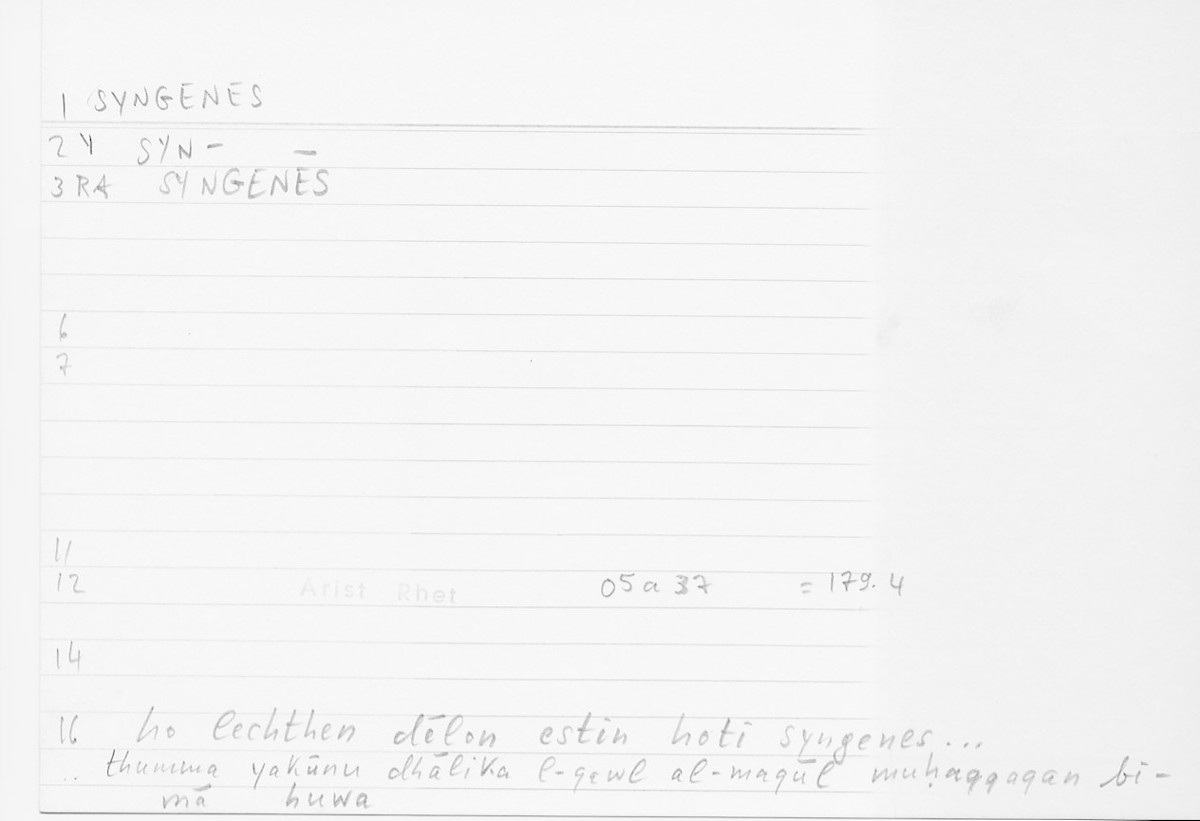 1 SYNGENĒS
2 Y SYN- —
3 RA SYNGENĒS
6
7
11
12 Arist Rhet 05a37 = 179.4
14
16 ho lechthen dēlon estin hoti syngenes...
.. thumma yakūnu dhālika l-qawl al-maqūl muḥaqqaqan bi-
mā huwa